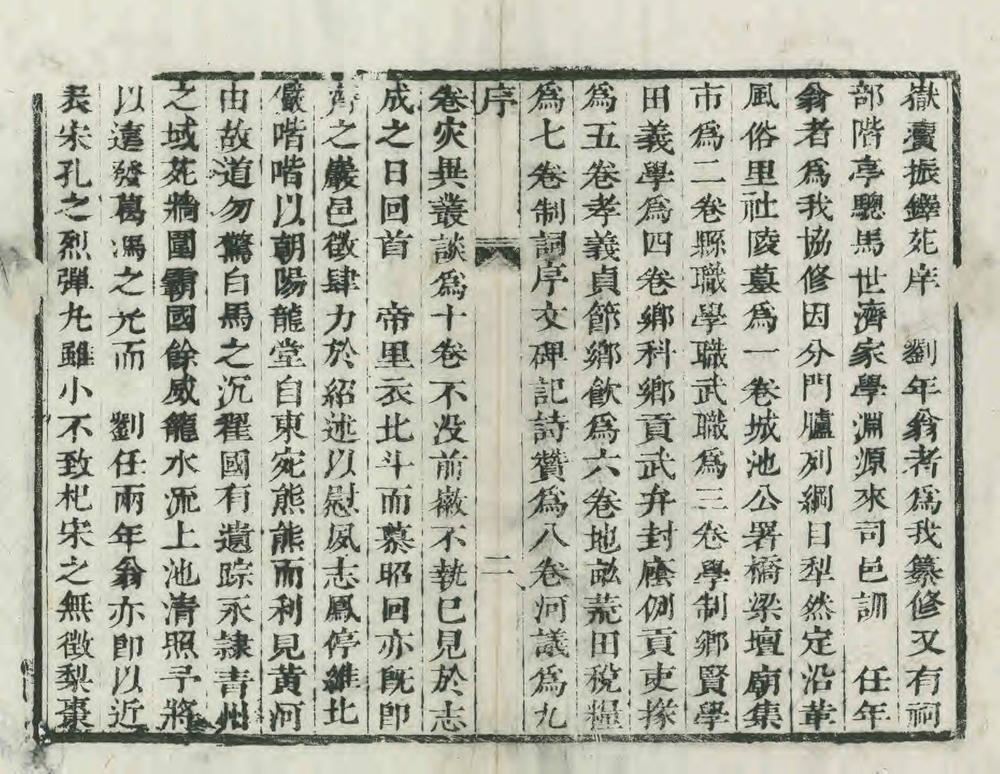 嶽賷振鐸茪庠　劉年翁者為我纂修又有祠
部階亭驄馬世濟家學淵源來司邑訓　任年
翁者為我協修因分門臚列綱目犁然定沿革
風俗里社陵墓為一卷城池公署橋梁壇廟集
市為二卷縣職學職武職為三卷學制鄉賢學
田義學為四卷鄉科鄉貢武弁封廕例貢吏掾
為五卷孝義貞節鄉飲為六卷地畝荒田稅糧
為七卷制詞序文碑記詩贊為八卷河議為九
序　二
卷災異叢談為十卷不没前徽不執已見於志
成之日回首　帝里衣北斗而慕昭回亦既卽
之巖邑徵肆力於紹述以慰夙志鳳停維北
巖喈喈以朝陽龍堂自東宛熊熊而利見黃河
由故道勿驚白馬之沉翟國有遺踪永隷青州
之域茪牆圍霸國餘威籠水流上池清照予將
以遠發葛馮之尤而　劉任兩年翁亦卽以近
表宋孔之烈彈丸雖小不致杞宋之無徵梨棗